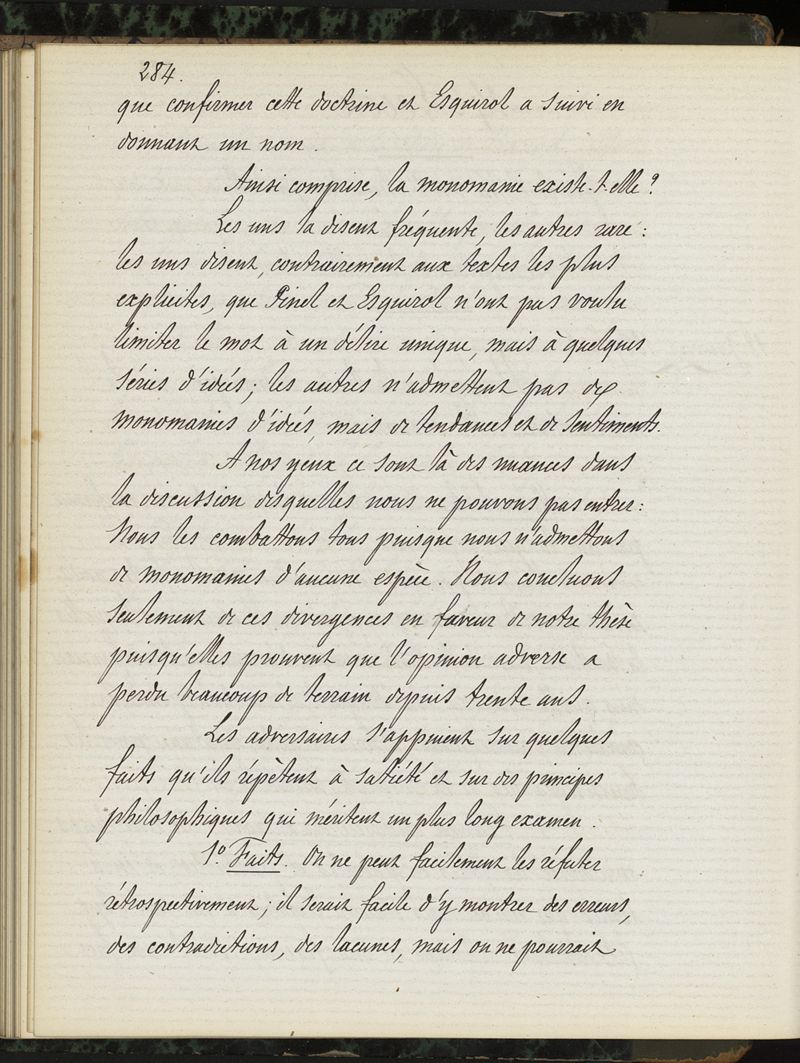 284.
que confirmer cette doctrine et Esquirol a suivi en
donnant un nom.
Ainsi comprise, la monomanie existe-t-elle ?
Les uns la disent fréquente, les autres rare :
les uns disent, contrairement aux textes les plus
explicites, que Pinel et Esquirol n'ont pas voulu
limiter le mot à un délire unique, mais à quelques
séries d'idées ; les autres n'admettent pas de
monomanies d'idées, mais de tendances et de sentiments.
A nos yeux ce sont là des nuances dans
la discussion desquelles nous ne pouvons pas entrer :
Nous les combattons tous puisque nous n'admettons
de monomanies d'aucune espèce. Nous concluons
seulement de ces divergences en faveur de notre thèse
puisqu'elles prouvent que l'opinion adverse a
perdu beaucoup de terrain depuis trente ans.
Les adversaires s'appuient sur quelques
faits qu'ils répètent à satiété et sur des principes
philosophiques qui méritent un plus long examen.
1.° Faits. On ne peut facilement les réfuter
rétrospectivement ; il serait facile d'y montrer des erreurs,
des contradictions, des lacunes, mais on ne pourrait